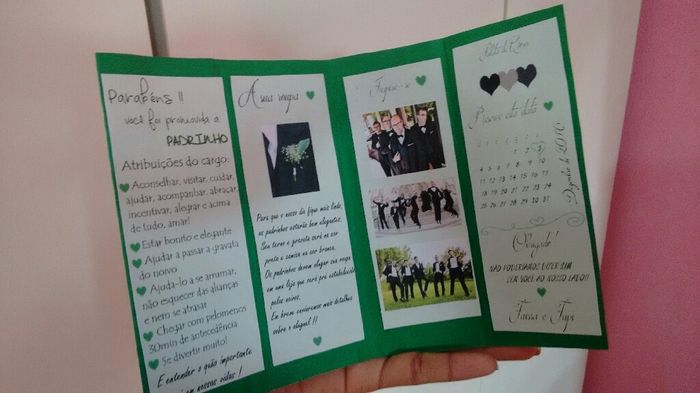 Parabéns !!
você foi promovido a
PADRINHO
Atribuições do cargo:
Aconselhar, visitar, cuidar,
ajudar, acompanhar, abraçar,
incentivar, alegrar e acima
de tudo, amar!
Estar bonito e elegante
Ajudar a passar a gravata
do noivo
Ajuda-lo a se arrumar,
não esquecer das alianças
e nem se atrasar
Chegar com pelomenos
30min de antecedência
Se divertir muito!
E entender o quão importante
em nossas vidas !
A sua roupa
Para que o nosso dia fique mais lindo,
os padrinhos estarão bem elegantes.
Seu terno e gravata será na cor
preta e camisa na cor branca.
Os padrinhos devem alugar sua roupa
em uma loja que será pré estabelecida
pelos noivos.
Em breve enviaremos mais detalhes
sobre o aluguel !!
Inspire-se
Reserve esta data
1 2 3
4 5 6 7 8 9 10
11 12 13 14 15 16 17
18 19 20 21 22 23 24
25 26 27 28 29 30 31
Dezembro de 2016
Obrigado!
NÃO PODERIAMOS DIZER SIM
SEM VOCÊ AO NOSSO LADO!!